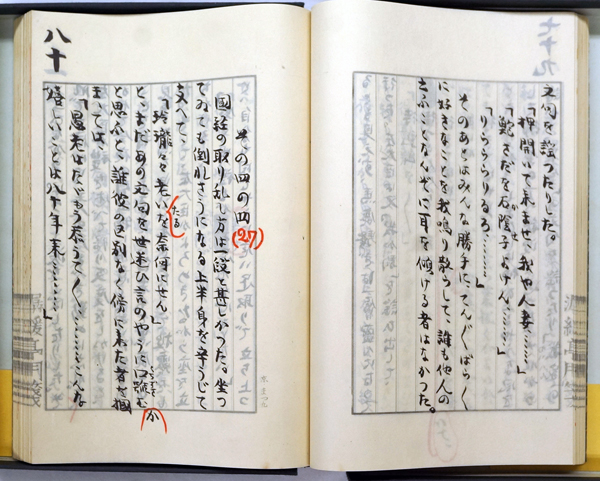 文句を謡つたりした。
「押開いて来ませ、我や人妻………」
「鮑さだをか石陰子よけん………」
かせ
「りらゝらりるろ………」
そのあとはみんな勝手に、てん〴〵ばら〴〵
に好きなことを我鳴り散らして、誰も他人の
云ふことなんぞに耳を傾ける者はなかつた。
八十
その四の四
(27)
国経の取り乱し方は一段と甚しかつた。坐つ
てゐても倒れさうになる上半身を辛うじて
支へて、
「玲瓏々老いを奈何にせん」
たる
と、まだあの文句を世迷ひ言のやうに口誦む
か
と思ふと、誰彼の区別なく傍に来た者を掴
まへては、
「愚老はたゞもう忝うて〳〵………こんな
嬉しいことは八十年来………」